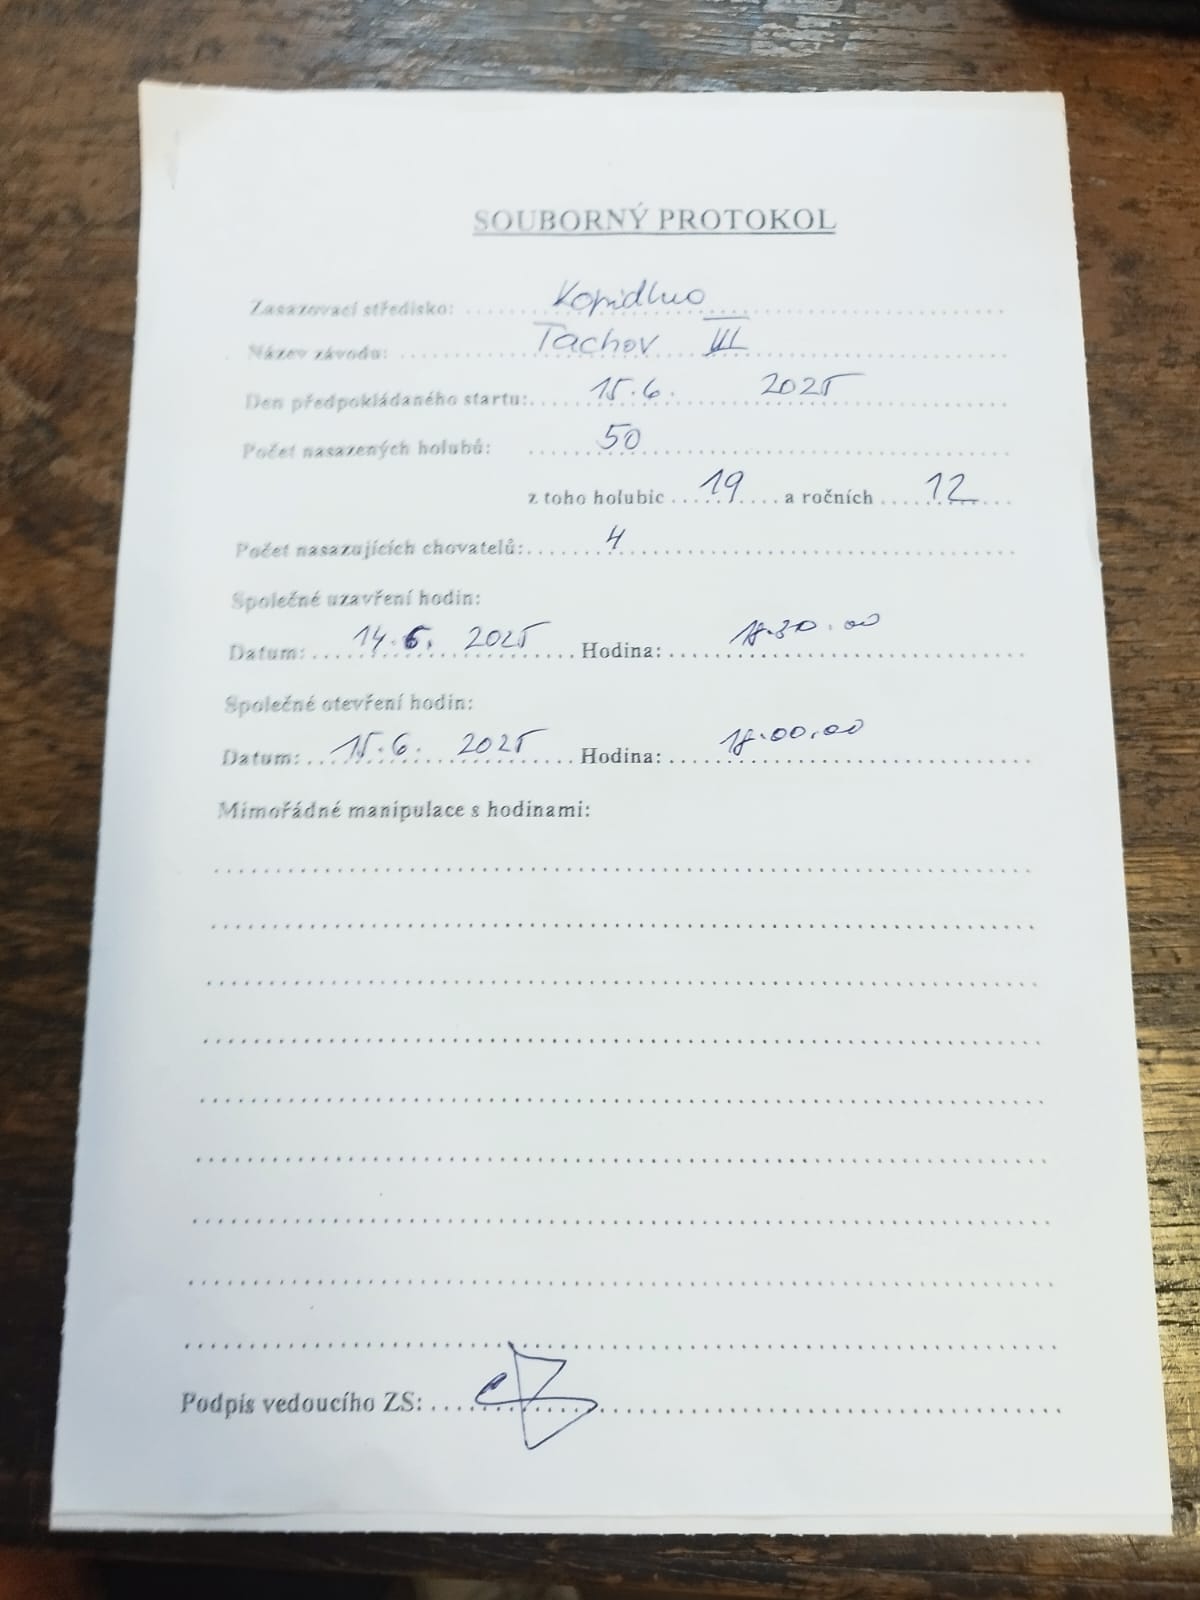 SOUBORNÝ PROTOKOL
Zasazovací středisko: Kopidlno
Název závodu: Tachov III
Den předpokládaného startu: 15.6. 2025
Počet nasazených holubů: 50
z toho holubic 19 a ročních 12
Počet nasazujících chovatelů: 4
Společné uzavření hodin:
Datum: 14.6. 2025 Hodina: 18.30.00
Společné otevření hodin:
Datum: 15.6. 2025 Hodina: 18.00.00
Mimořádné manipulace s hodinami:
Podpis vedoucího ZS: